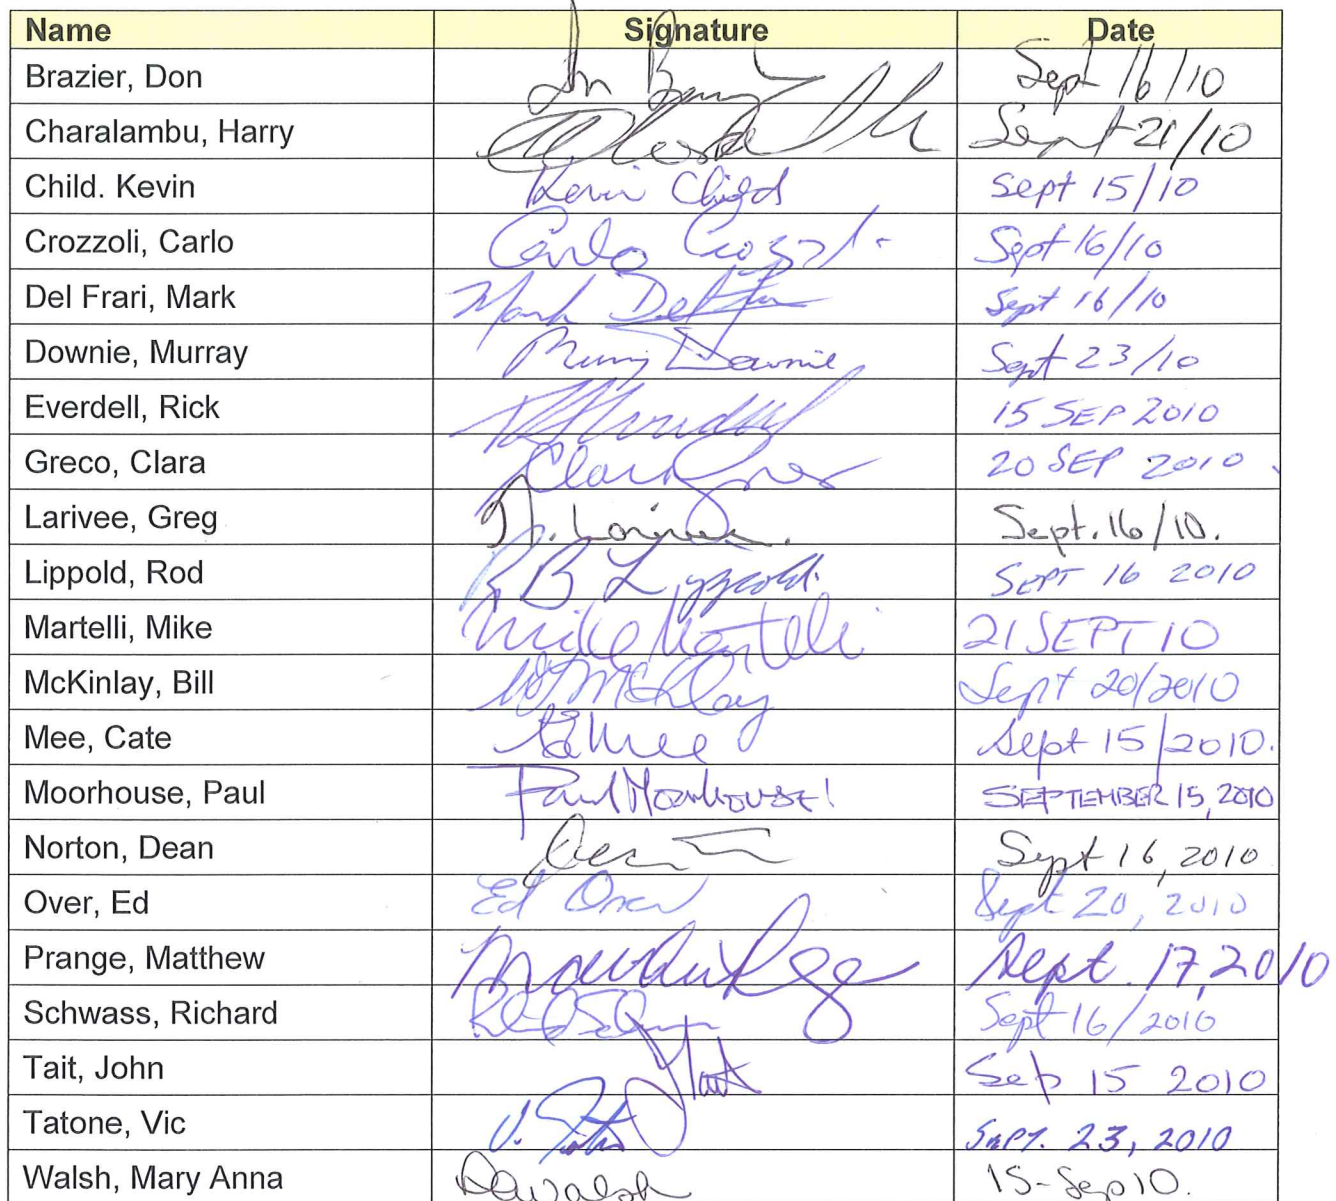 Name Signature Date
Brazier, Don Sept 16/10
Charalambu, Harry Sept 21/10
Child. Kevin Kevin Childs Sept 15/10
Crozzoli, Carlo Carlo Sept 16/10
Del Frari, Mark Mark Sept 16/10
Downie, Murray Downie Sept 23/10
Everdell, Rick 15 SEP 2010
Greco, Clara Clara 20 SEP 2010
Larivee, Greg Sept. 16/10.
Lippold, Rod RB Lippold. SEPT 16 2010
Martelli, Mike Mike Martelli 21 SEPT 10
McKinlay, Bill Sept 20/2010
Mee, Cate Mee Sept 15/2010.
Moorhouse, Paul Paul Moorhouse SEPTEMBER 15, 2010
Norton, Dean Sept 16, 2010
Over, Ed Ed Over Sept 20, 2010
Prange, Matthew Sept. 17, 2010
Schwass, Richard Sept 16/2010
Tait, John Tait Sep 15 2010
Tatone, Vic V. SEPT. 23, 2010
Walsh, Mary Anna Walsh 15-Sep 10.